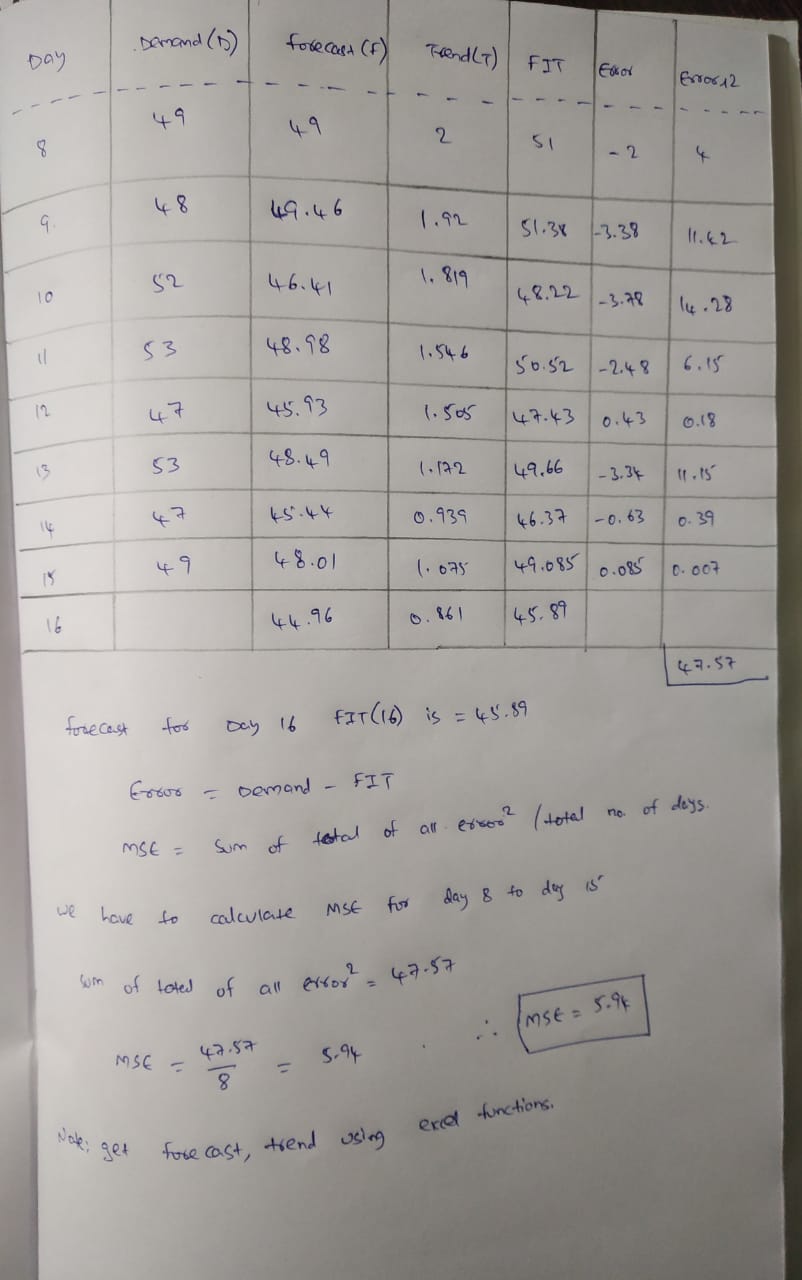 Day Demand (D) forecast (F) Trend (T) FIT Error Error^2
8 49 49 2 51 -2 4
9. 48 49.46 1.92 51.38 -3.38 11.42
10 52 46.41 1.819 48.22 -3.78 14.28
11 53 48.98 1.546 50.52 -2.48 6.15
12 47 45.93 1.505 47.43 0.43 0.18
13 53 48.49 1.172 49.66 -3.34 11.15
14 47 45.44 0.939 46.37 -0.63 0.39
15 49 48.01 1.075 49.085 0.085 0.007
16 44.96 0.861 45.89
47.57
forecast for Day 16 FIT(16) is = 45.89
Error = Demand - FIT
MSE = Sum of total of all error² / total no. of days.
we have to calculate MSE for day 8 to day 15
Sum of total of all error² = 47.57
MSE = 47.57/8 = 5.94 . ∴ MSE = 5.94
Note: get forecast, trend using excel functions.